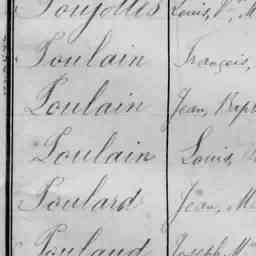 Poujolles Louis, V. M
Poulain François,
Poulain Jean, Bapt
Poulain Louis,
Poulard Jean, M
Poulaud Joseph, M